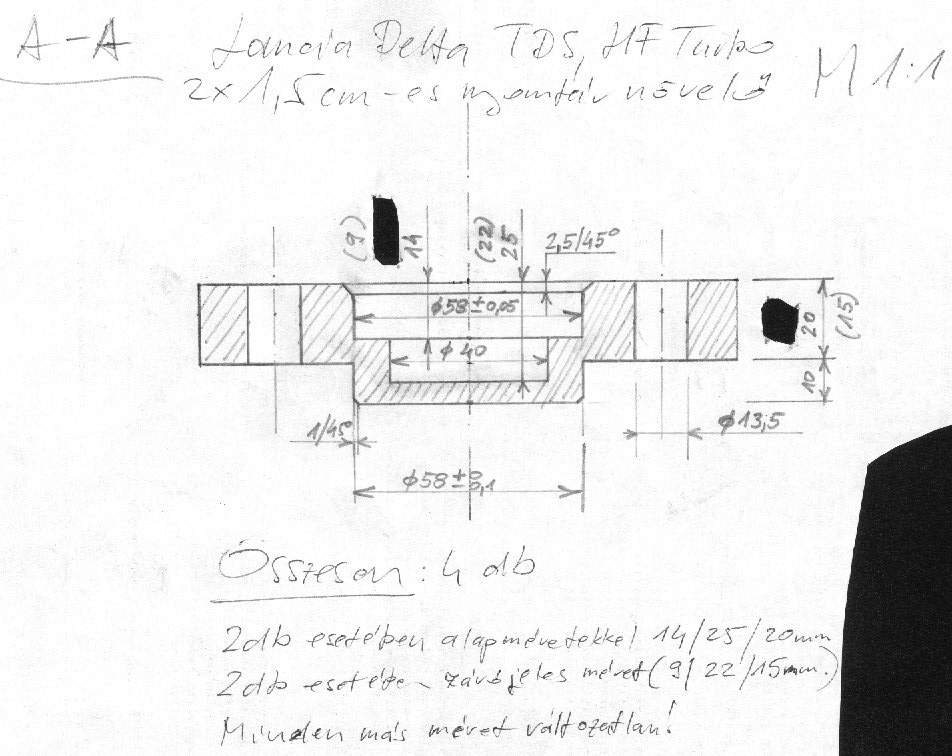 A-A
Lancia Delta TDS, HF Turbo
2x1,5cm-es nyomtáv növelő
M 1:1
(9)
14
(22)
25
2,5/45°
φ58±0,05
φ40
20
(15)
10
1/45°
φ13,5
φ58±0,1
Összesen: 4 db
2db esetében alapméretekkel 14/25/20mm
2db esetében zárójeles méret (9/22/15mm.)
Minden más méret változatlan!